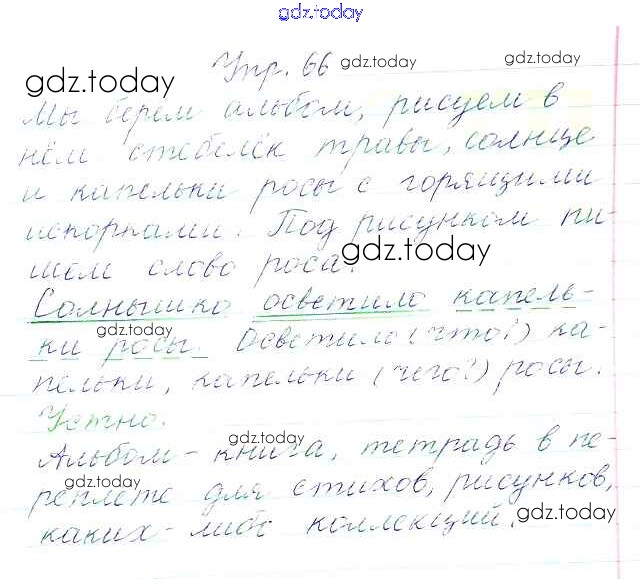 gdz.today
Упр. 66 gdz.today gdz.today
gdz.today
Мы берём альбом, рисуем в
нём стебелёк травы, солнце
и капельки росы с горящими
искорками. Под рисунком пи-
gdz.today
шем слово роса.
Солнышко осветило капель-
gdz.today
ки росы. Осветило (что?) ка-
пельки, капельки (чего?) росы.
Устно.
gdz.today
Альбом - книга, тетрадь в пе-
gdz.today
реплёте для стихов, рисунков,
каких-либо коллекций. gdz.today